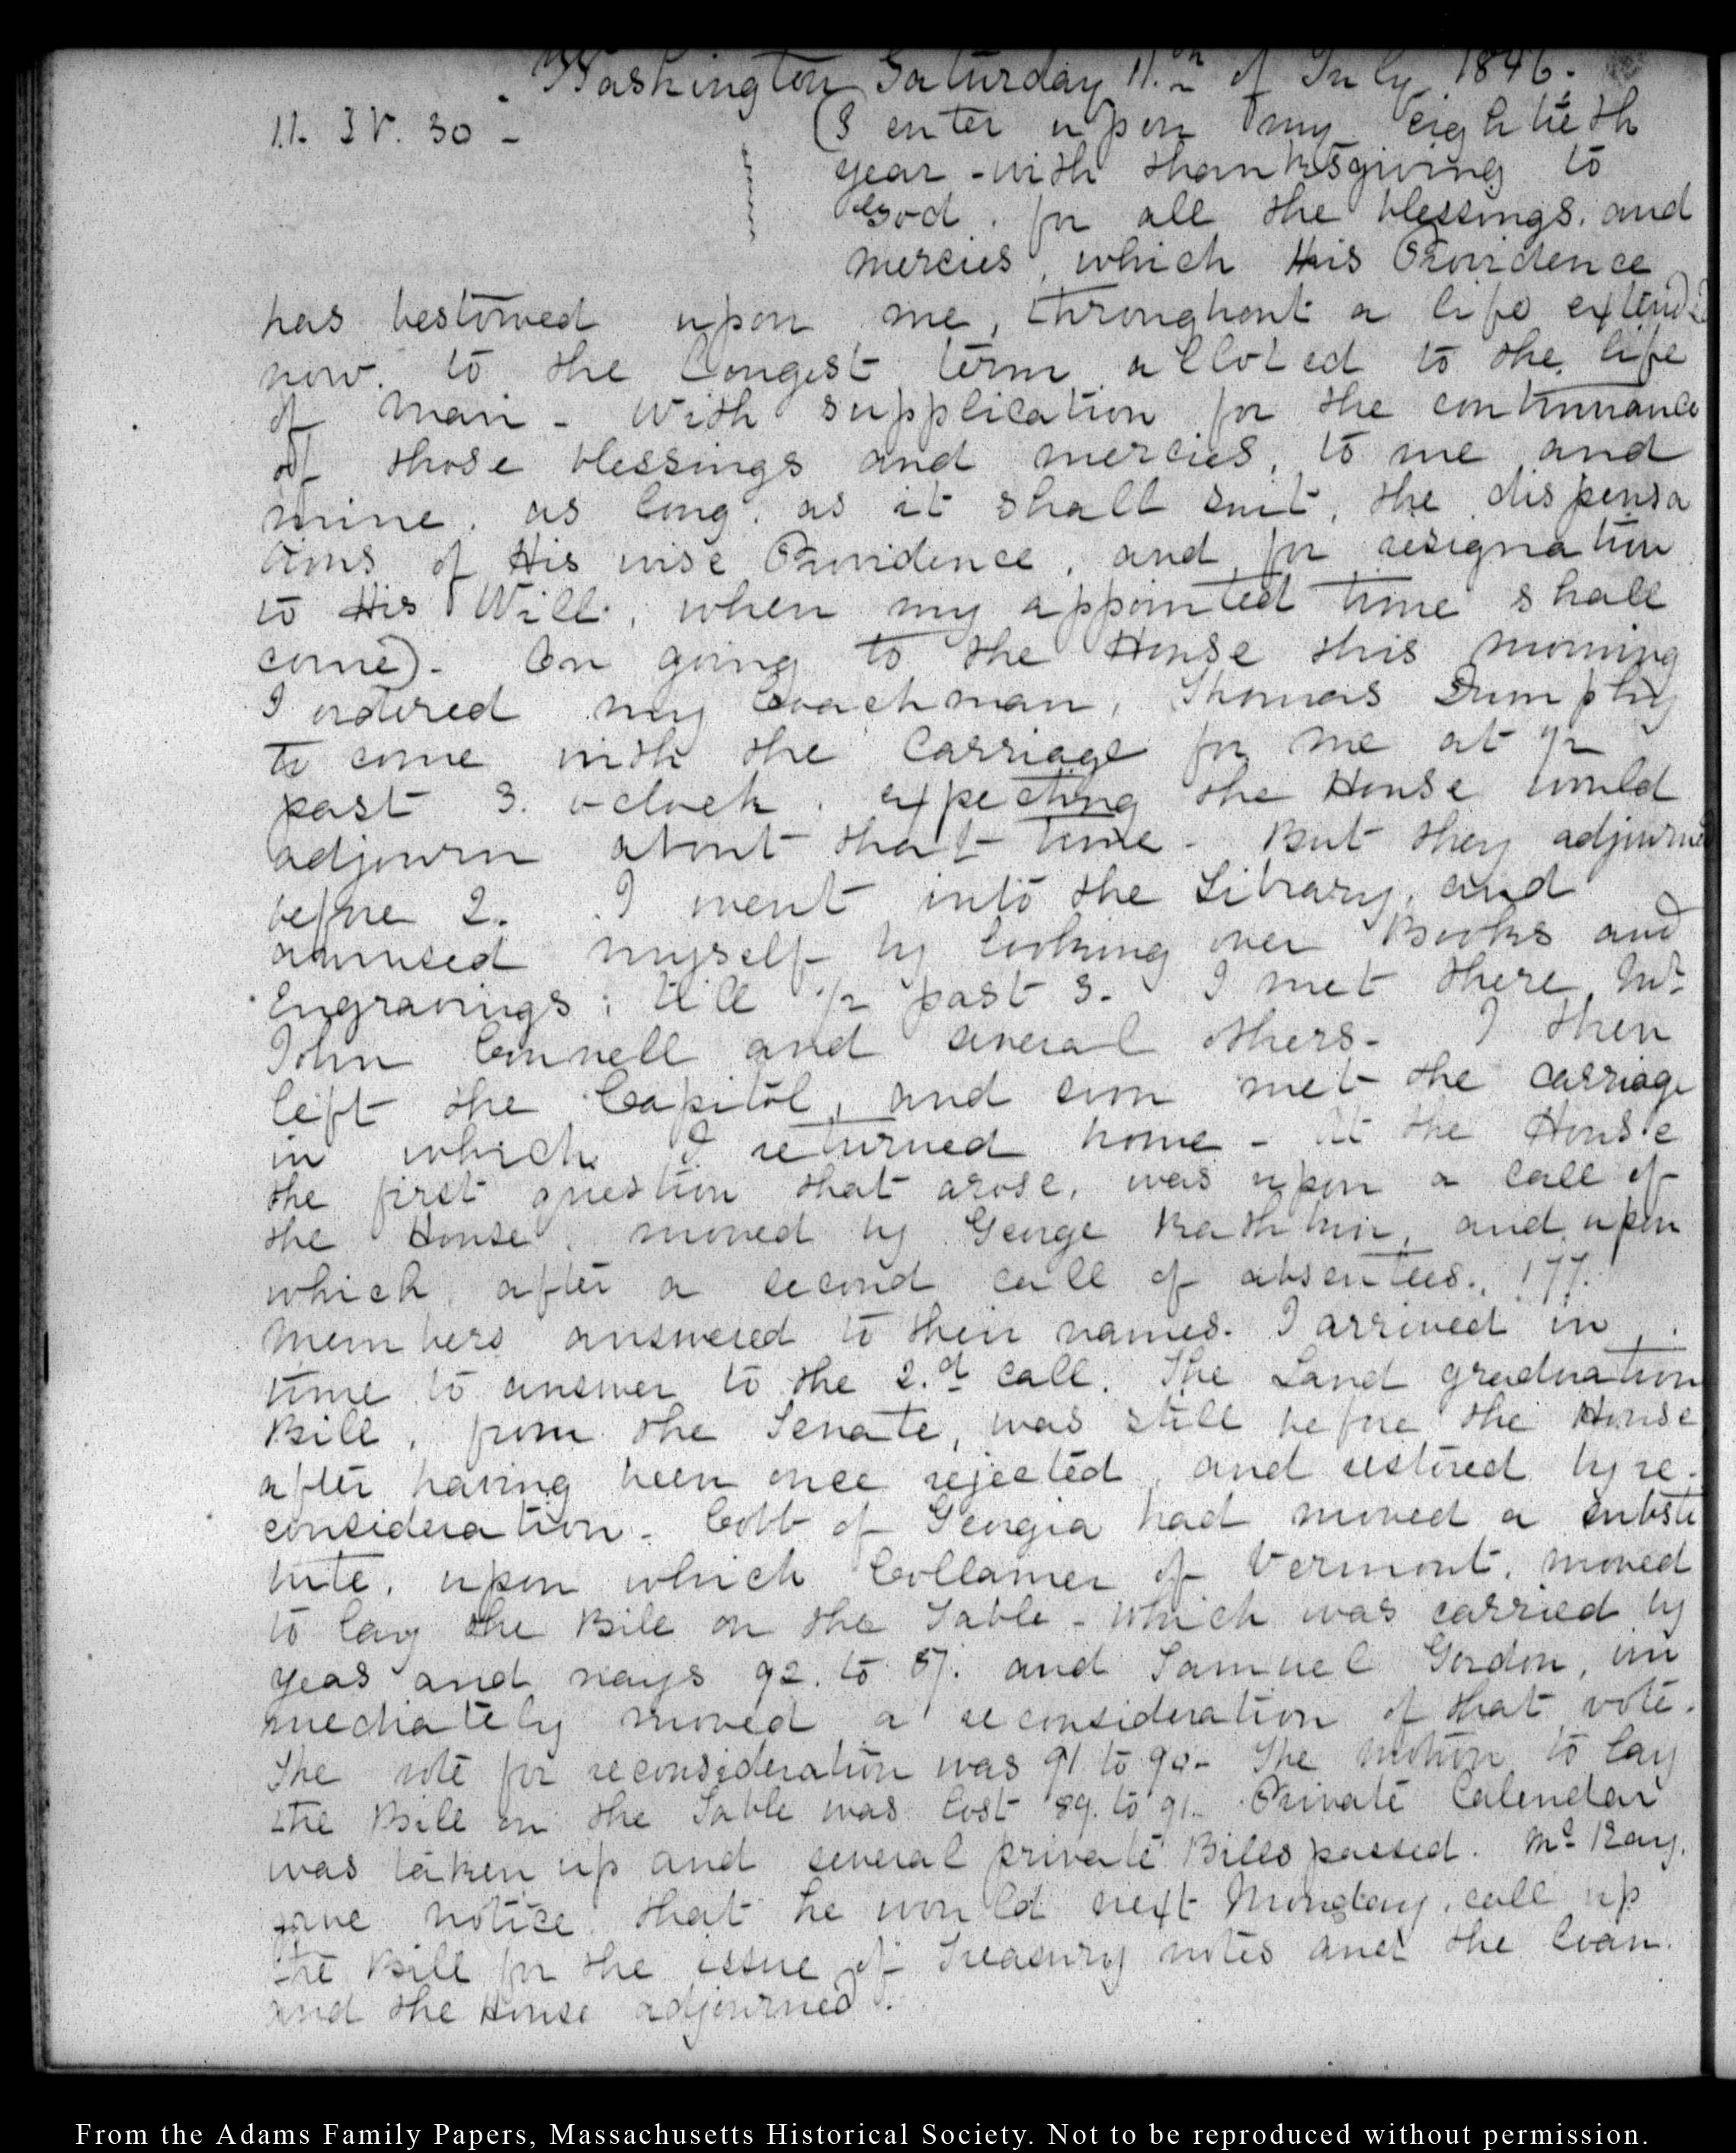 Washington Saturday 11.th of July 1846.
11. IV. 30 –
(I enter upon my eightieth
year – with thanksgiving to
God, for all the blessings, and
mercies, which His Providence
has bestowed upon me, throughout a life extended
now to the longest term alloted to the life
of man – with supplication for the continuance
of those blessings and mercies, to me and
mine, as long, as it shall suit, the dispensa
tions of His wise Providence, and for resignation
to His Will, when my appointed time shall
come). – On going to the House this morning
I ordered my Coachman, Thomas Dumphy
to come with the Carriage for me at 1/2
past 3. o-clock, expecting the House would
adjourn about that time – But they adjourned
before 2. I went into the Library, and
amused myself by looking over Books and
Engravings, till 1/2 past 3. I met there Mr.
John Connell and several others – I then
left the Capitol, and soon met the carriage
in which I returned home – At the House
the first question that arose, was upon a call of
the House, moved by George Rathbun, and upon
which, after a second call of absentees, 177.
Members answered to their names. I arrived in
time to answer to the 2.d call. The Land graduation
Bill, from the Senate, was still before the House
after having been once rejected, and restored by re-
consideration – Cobb of Georgia had moved a substi
tute, upon which Collamer of Vermont, moved
to lay the Bill on the Table – which was carried by
yeas and nays 92. to 87. and Samuel Gordon, im
mediately moved a reconsideration of that vote.
The vote for reconsideration was 91 to 90 – The motion to lay
the Bill on the Table was lost 89. to 91. Private Calendar
was taken up and several private Bills passed. Mc Kay,
gave notice that he would next Monday, call up
the Bill for the issue of Treasury notes and the loan.
and the House adjourned.
From the Adams Family Papers, Massachusetts Historical Society. Not to be reproduced without permission.